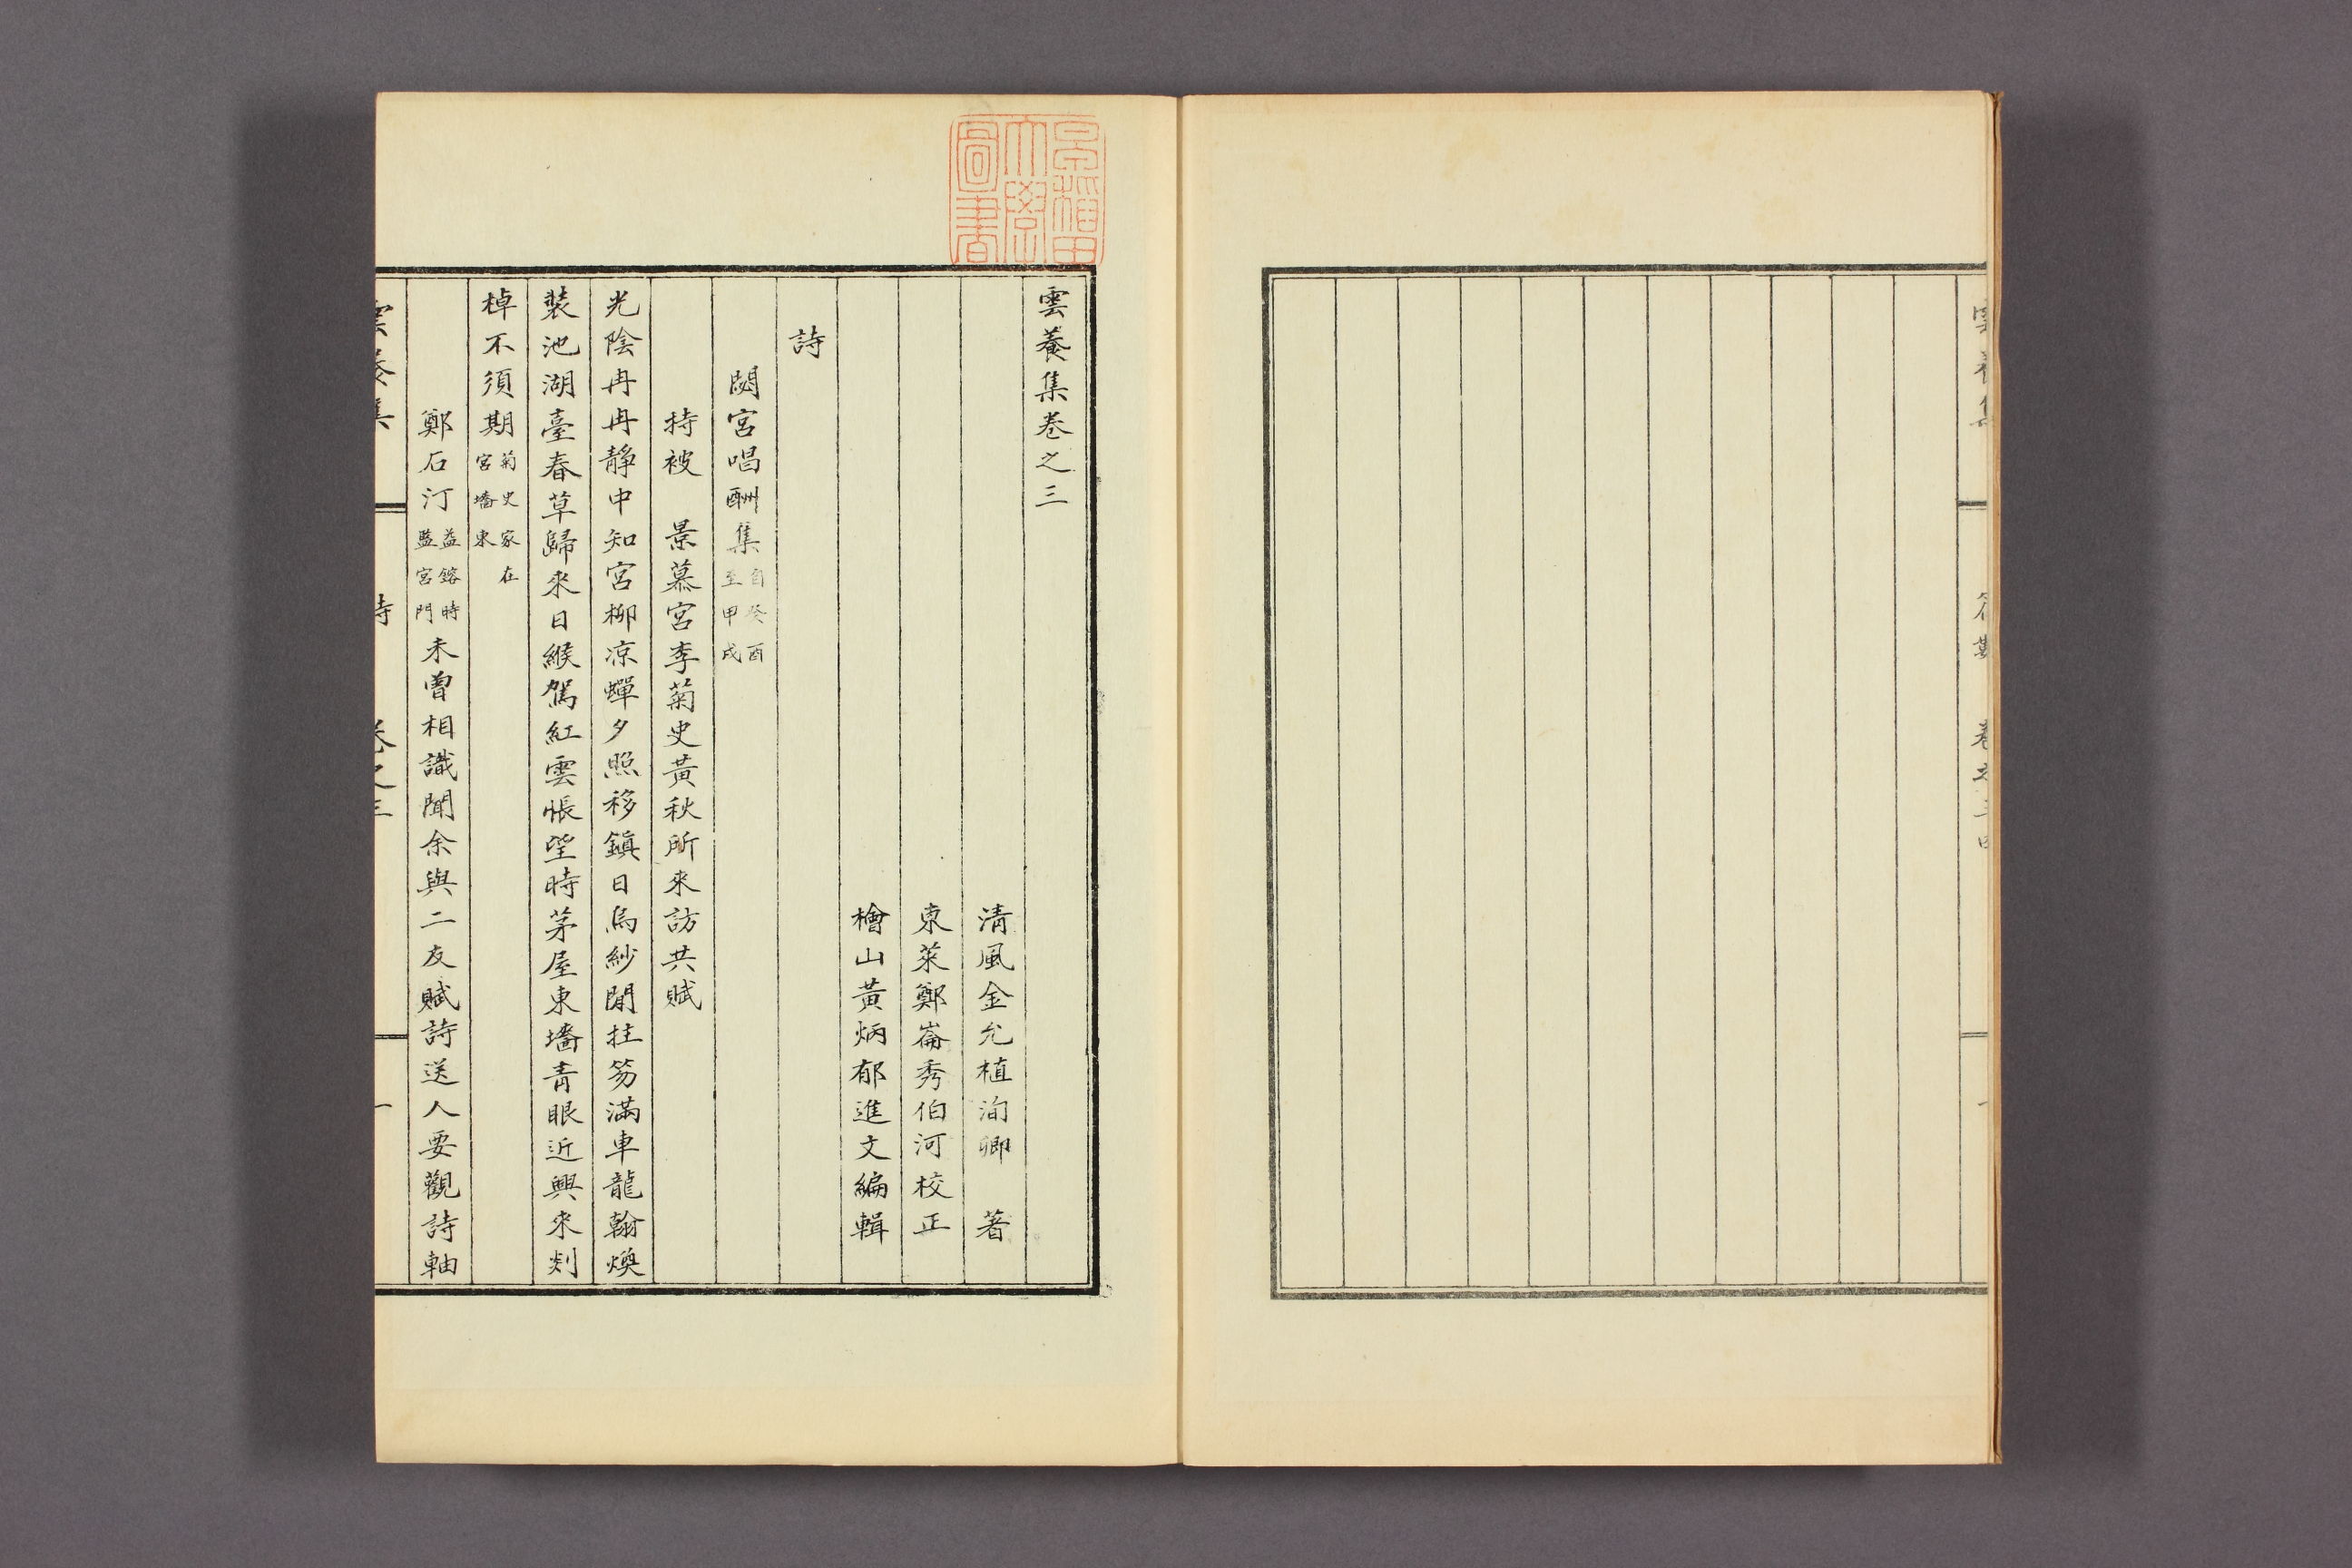 雲養集卷之三
清風金允植洵卿　著
東萊鄭崙秀伯河校正
檜山黃炳郁進文編輯
詩
閟宮唱酬集自癸酉至甲戌
持被　景慕宮李菊史黃秋所來訪共賦
光陰冉冉靜中知宮柳凉蟬夕照移鎭日烏紗閒拄笏滿車龍翰煥
裝池湖臺春草歸來日緱駕紅雲悵望時茅屋東墻靑眼近興來剡
棹不須期菊史家在宮墻東
鄭石汀益鎔時監宮門未曾相識聞余與二友賦詩送人要觀詩軸
雲養集
詩
卷之三
一
早稻田大學圖書